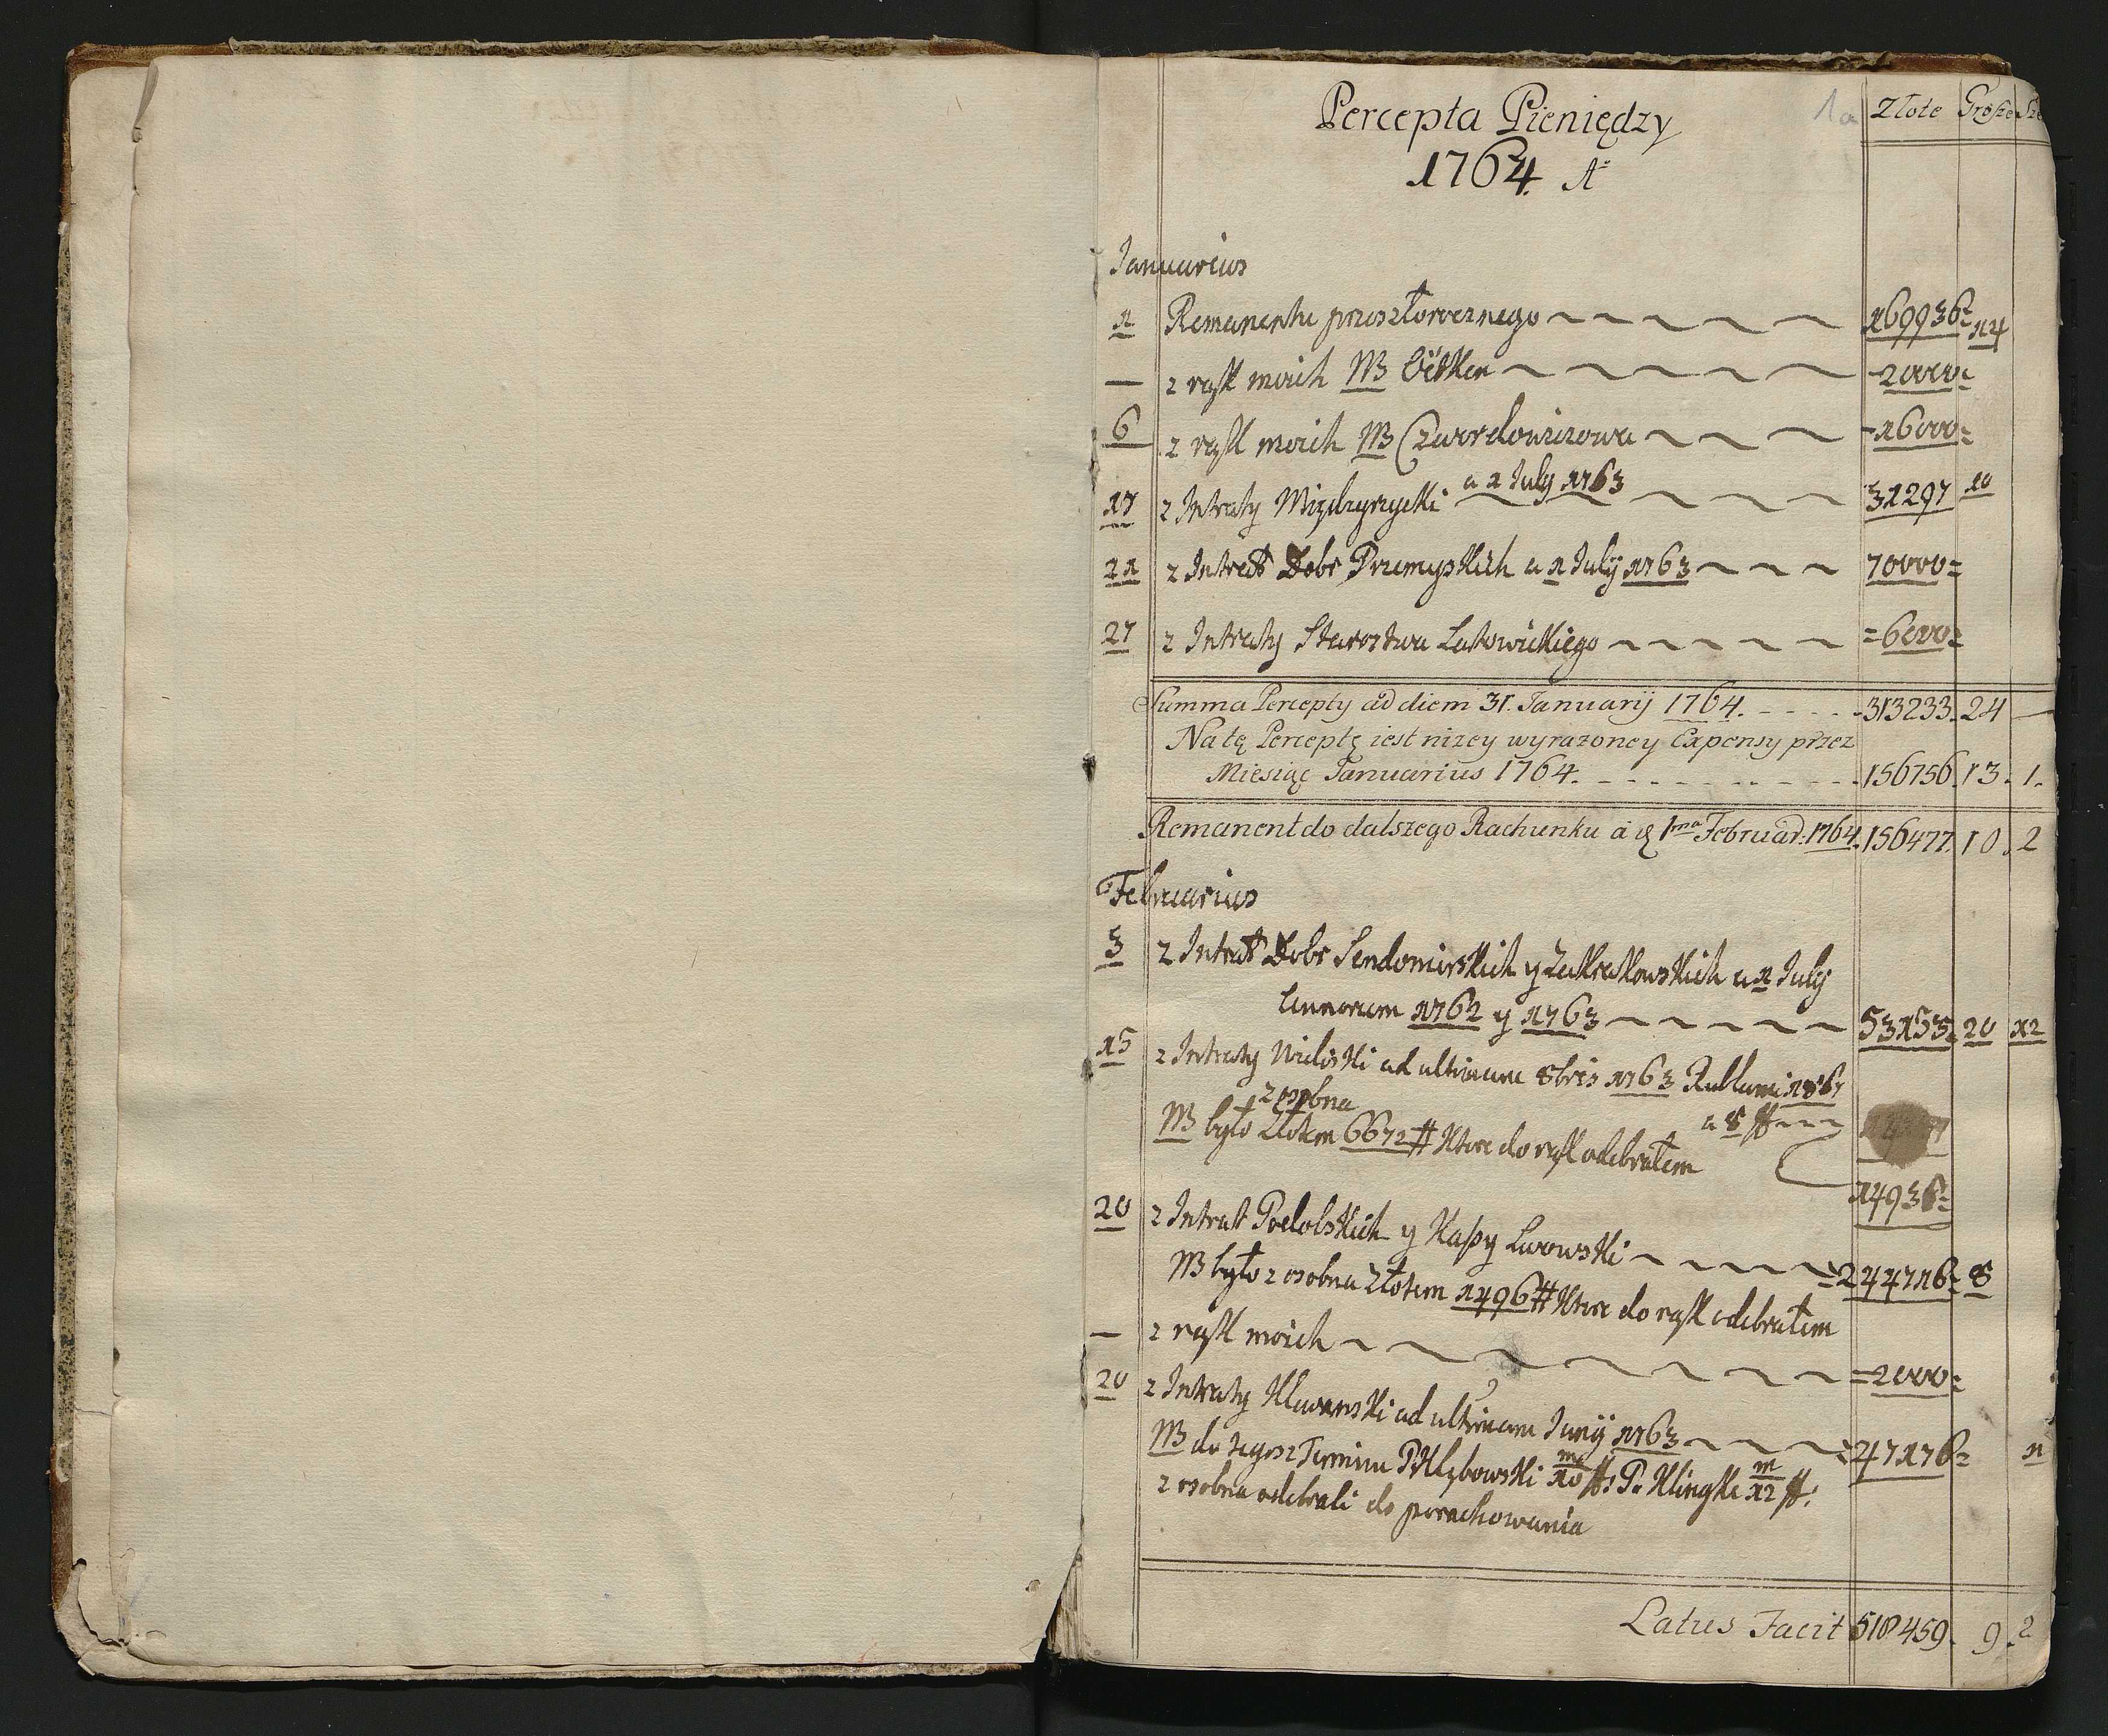 Percepta Pieniędzy 1a Złote Grosze
1764. A
Januarius
1 Remanentu przeszłorocznego 169936 14
— z rąk moich NB 20000
6 z rąk moich NB 16000
17 z Intraty Międzyrzycki a 1 July 1763 31297 10
21 z Intrat Dobr Przemyskich a 1 July 1763 70000
27 z Intraty Starostwa Latowickiego 6000
Summa Percepty ad diem 31. Januarij 1764. 313233. 24 —
Na tę Perceptę iest nizey wyrazoney Expensy przez
Miesiąc Januarius 1764. 156756. 13. 1.
Remanent do dalszego Rachunku a 1ma Februar: 1764. 156477. 10. 2
Februarius
3 z Intrat Dobr Sendomirskich y Zakrakowskich a 1 July
Annorum 1762 y 1763 53153 20 12
15 z Intraty ad ultimam 8bris 1763 1867
z osobna a 8 ff
NB było Złotem 6672 # Ktore do rąk odebrałem
14936
20 z Intrat Podolskich y Kassy Lwowski 244716 8
NB było z osobna Złotem 1496 # Ktore do rąk odebrałem
— z rąk moich 2000
20 z Intraty Klewanski ad ultimam Junij 1763 47176 1
NB do tegosz Terminu P Klębowski m/10 ff: P. Klingke m/12 ff:
z osobna odebrali do porachowania
Latus Facit 518459. 9. 2